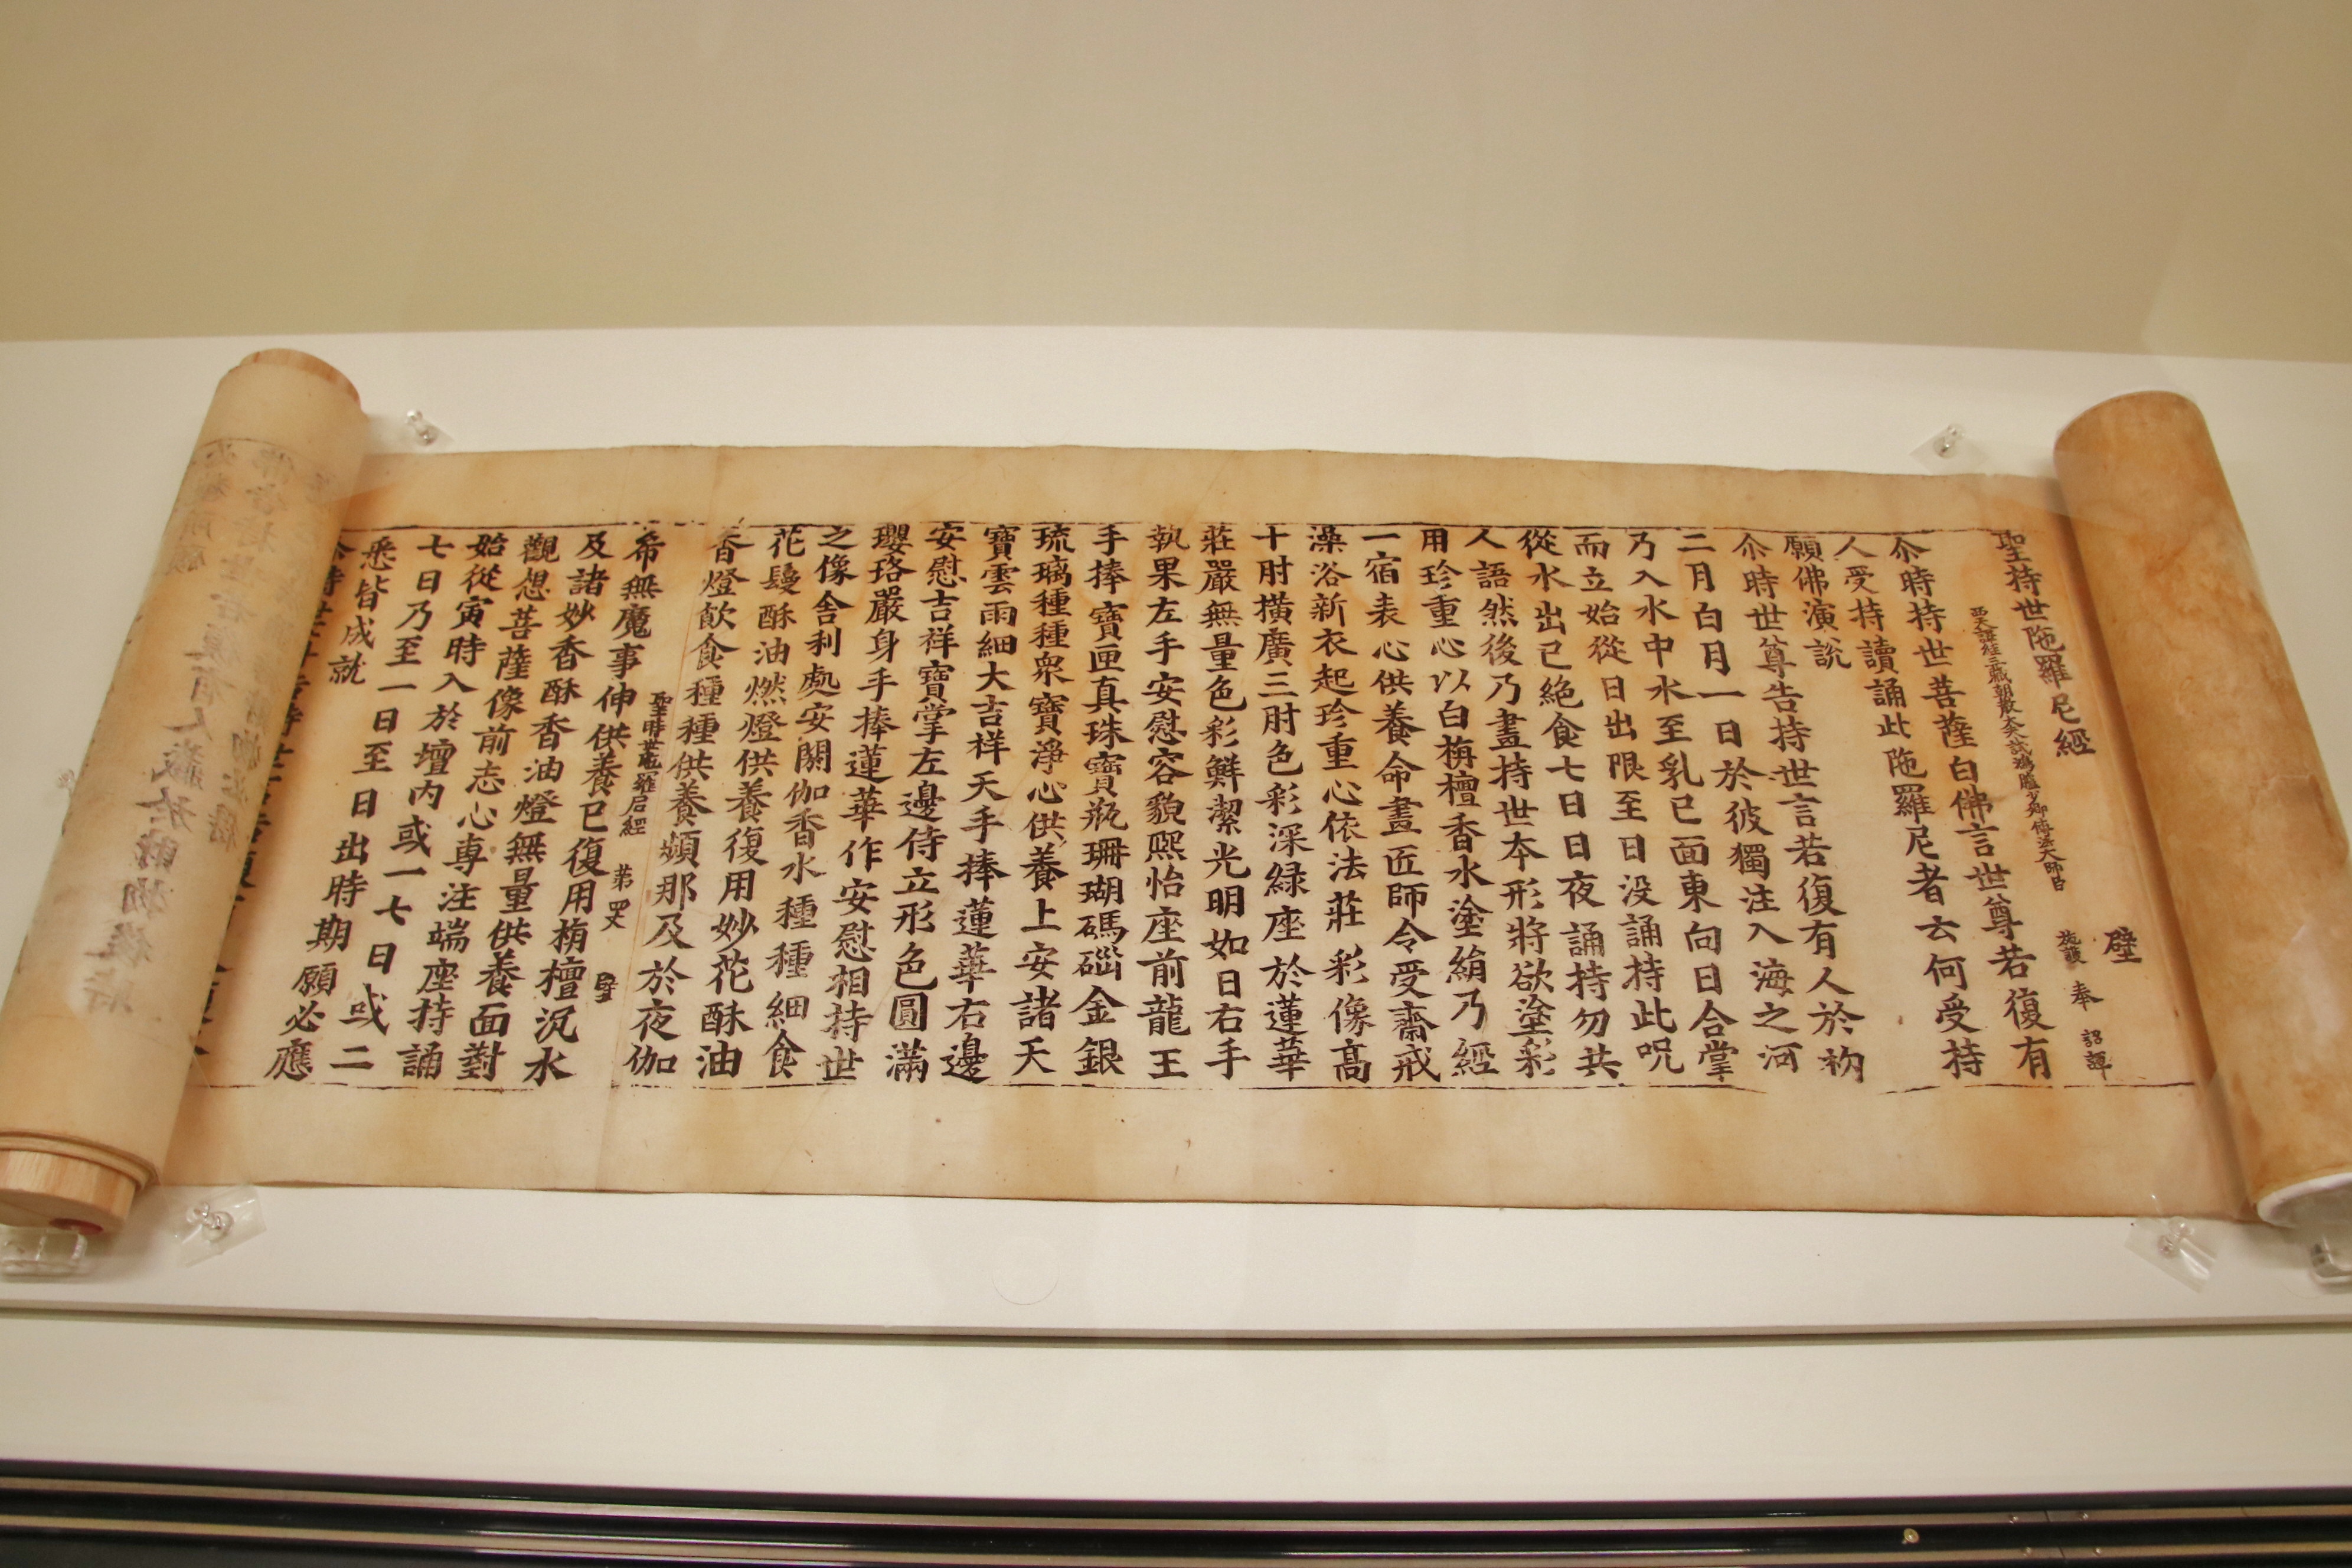 聖持世陁羅尼經 壁
西天譯經三藏朝散大夫試鴻臚少卿傳法大師臣 施護 奉 詔譯
尒時持世菩薩白佛言世尊若復有
人受持讀誦此陁羅尼者云何受持
願佛演說
尒時世尊告持世言若復有人於初
二月白月一日於彼獨注入海之河
乃入水中水至乳已面東向日合掌
而立始從日出限至日没誦持此呪
從水出已絶食七日日夜誦持勿共
人語然後乃畫持世本形將欲塗彩
用珍重心以白栴檀香水塗絹乃經
一宿表心供養命畫匠師令受齋戒
澡浴新衣起珍重心依法莊彩像高
十肘橫廣三肘色彩深緑座於蓮華
莊嚴無量色彩鮮潔光明如日右手
執果左手安慰容貌熙怡座前龍王
手捧寶匣真珠寶瓶珊瑚碼碯金銀
琉璃種種衆寶淨心供養上安諸天
寶雲雨細大吉祥天手捧蓮華右邊
安慰吉祥寶掌左邊侍立形色圓滿
瓔珞嚴身手捧蓮華作安慰相持世
之像舍利處安閼伽香水種種細食
花鬘酥油燃燈供養復用妙花酥油
香燈飲食種種供養頻那及於夜伽
聖持世陁羅尼經 苐 四丈 壁
希無魔事伸供養已復用栴檀沉水
及諸妙香酥香油燈無量供養面對
觀想菩薩像前志心專注端座持誦
始從寅時入於壇内或一七日或二
七日乃至一日至日出時期願必應
悉皆成就